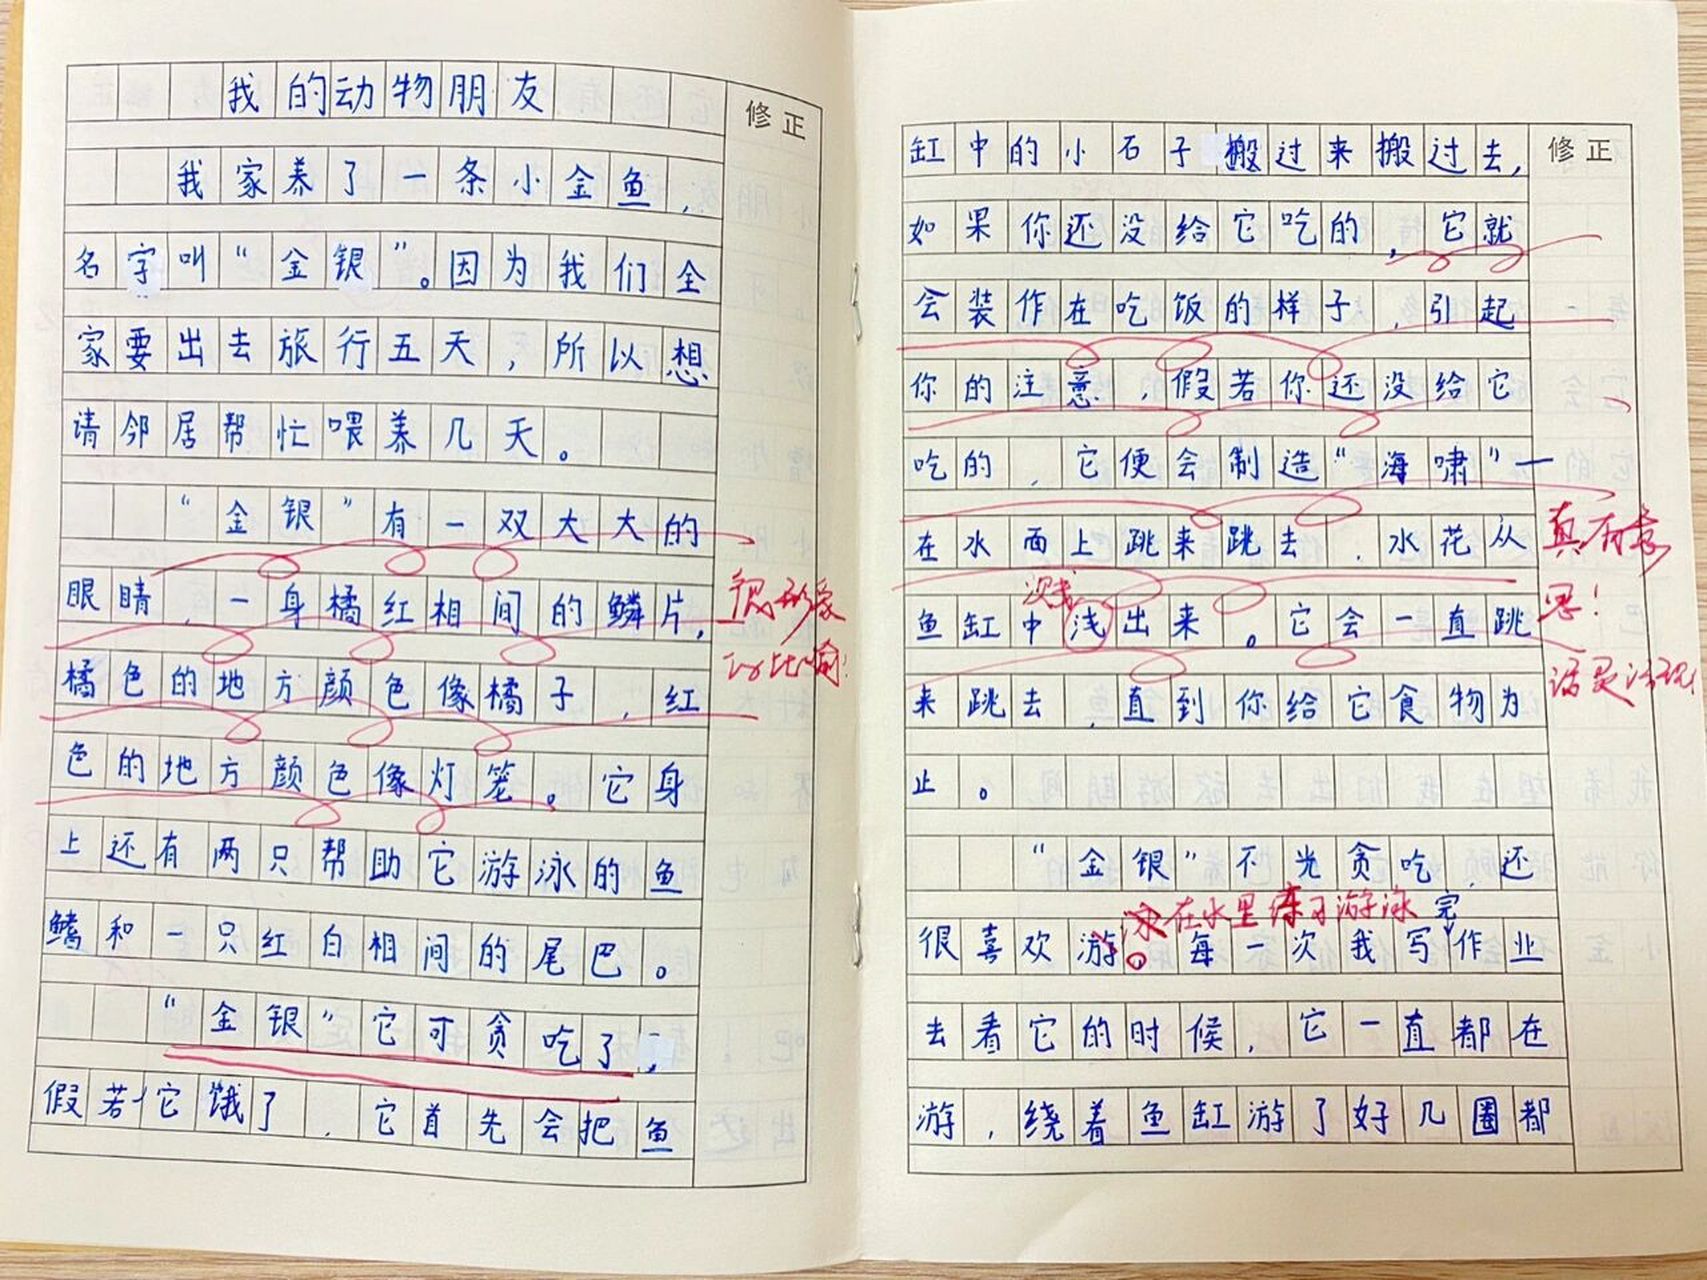 我的动物朋友
修正
我家养了一条小金鱼，
名字叫“金银”。因为我们全
家要出去旅行五天，所以想
请邻居帮忙喂养几天。
“金银”有一双大大的
眼睛，一身橘红相间的鳞片，
橘色的地方颜色像橘子，红
色的地方颜色像灯笼。它身
上还有两只帮助它游泳的鱼
鳍和一只红白相间的尾巴。
“金银”它可贪吃了，
假若它饿了，它首先会把鱼
很形象
的比喻！
修正
缸中的小石子搬过来搬过去，
如果你还没给它吃的，它就
会装作在吃饭的样子，引起
你的注意，假若你还没给它
吃的，它便会制造“海啸”—
在水面上跳来跳去，水花从
溅
鱼缸中浅出来。它会一直跳
来跳去，直到你给它食物为
止。
真有意
思！
活灵活现！
“金银”不光贪吃，还
泳在水里练习游泳 完
很喜欢游。每一次我写作业
去看它的时候，它一直都在
游，绕着鱼缸游了好几圈都